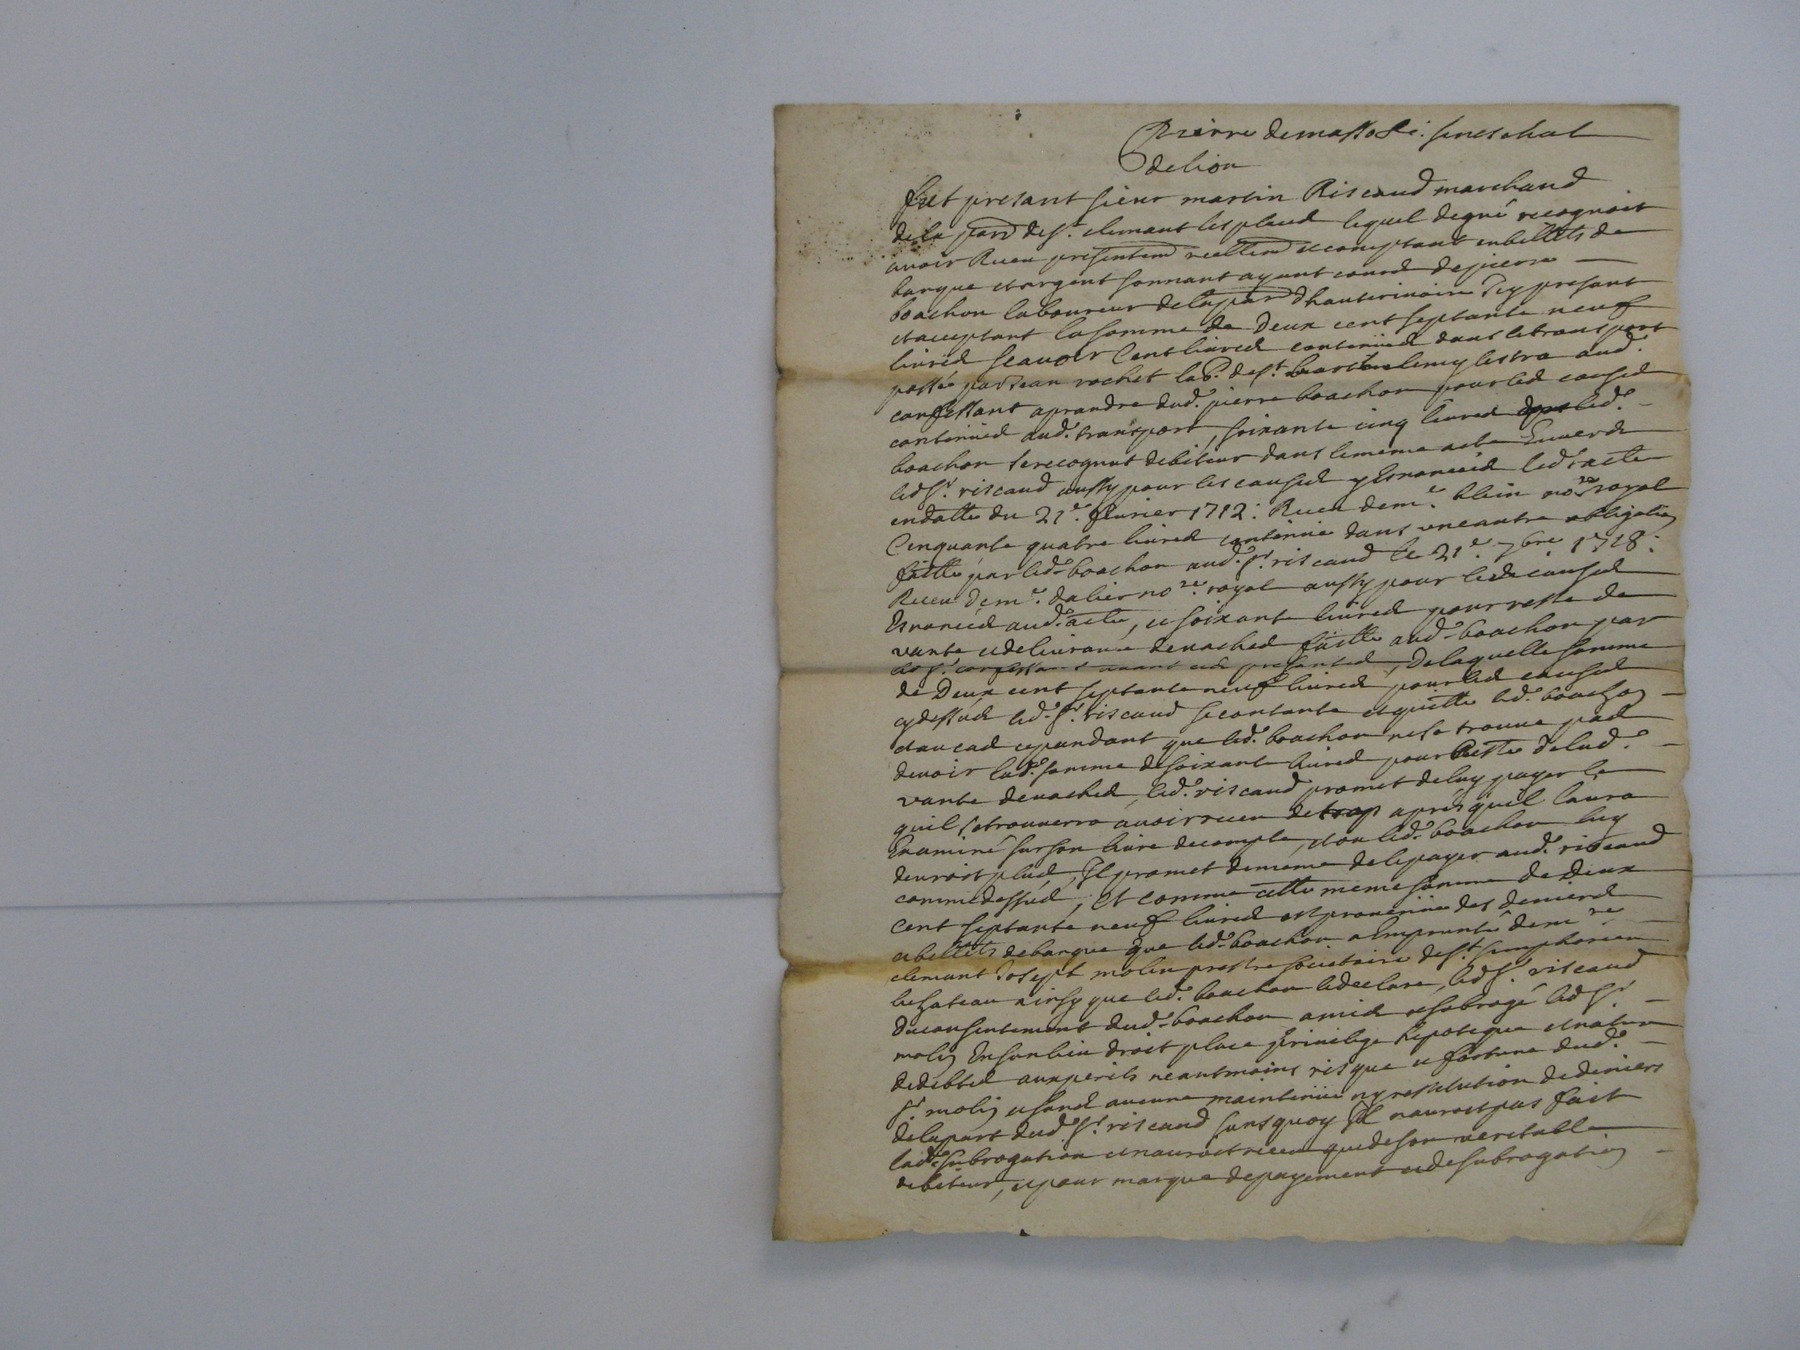 Pierre de masso &c. seneschal
de lion
fut presant sieur martin Riscaud marchand
de la parr de st. clemant les places lequel de gré recognoit
avoir Receu presentemt reellemt et comptant en billets de
banque et argent sonnant ayant cours de pierre
boachon laboureur de la parr d'hauterivoire Icy presant
et acceptant la somme de Deux cent septante neuf
livres scavoir Cent livres contenües dans le transport
passé par Jean rochet la pe. de st. barthelemy lestra aud.
confessant a prandre dud. pierre boachon pour les causes
contenües aud. transport, soixante cinq livres dont led.
boachon se recognut debiteur dans le meme acte Envers
led sr. riscaud aussy pour les causes y Enoncées led. acte
en datte du 21e. fevrier 1712: Receu de me. blein nore royal
Cinquante quatre livres contenüe dans une autre obligation
faitte par led. boachon aud. sr. riscaud le 21e. 7bre 1718:
Receu de me. dalier nore. royal aussy pour les causes
Enoncées aud. acte, et soixante livres pour reste de
vante et delivrance de vaches faitte aud. boachon par
led sr. confessant avant ces presantes, De laquelle somme
de Deux cent septante neuf livres pour les causes
cy dessus led. sr. riscaud se contante et quitte led. boachon
et au cas cepandant que led. boachon ne se trouve pas
devoir lad. somme de soixante livres pour Reste de lad.
vante de vaches, led. riscaud promet de luy payer ce
quil se trouverra avoir receu de trop apres quil laura
Examiné sur son livre de compte, et ou led. boachon luy
devroit plus, Il promet de meme de le payer aud. riscaud
comme dessus, Et comme cette meme somme de Deux
cent septante neuf livres est provenüe des deniers
et billets de banque que led. boachon a Emprunté de mre
clemant Josept molin prestre societaire de st. simphorien
le chateau ainsy que led. boachon le declare, led sr. riscaud
Du consentement dud. boachon a mis et subrogé led sr.
molin En son lieu droit place privilege hipoteque et nature
de debtes aux perils neantmoins risque et fortune dud.
sr. molin et sans aucune maintenüe ny restitution de deniers
de la part dud. sr. riscaud sans quoy Il nauroit pas fait
lad. subrogation et nauroit receu que de son veritable
debiteur, et pour marque de payement et de subrogation